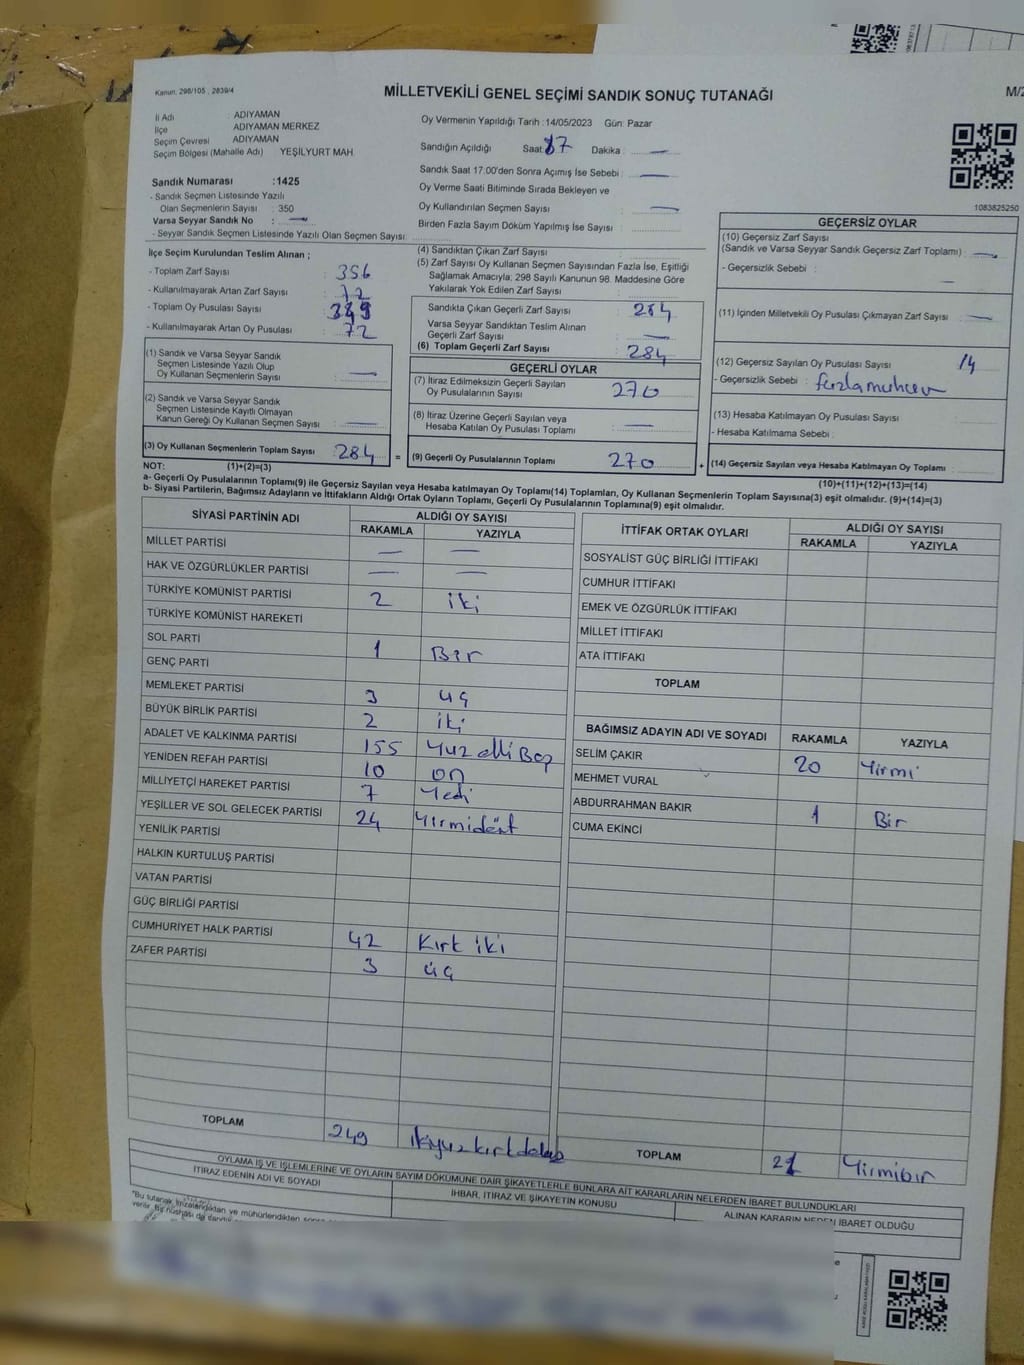 Kanun, 298/105 , 2839/4
MİLLETVEKİLİ GENEL SEÇİMİ SANDIK SONUÇ TUTANAĞI
M/2
İl Adı : ADIYAMAN
İlçe ADIYAMAN MERKEZ
Seçim Çevresi ADIYAMAN
Seçim Bölgesi (Mahalle Adı) YEŞİLYURT MAH.
Sandık Numarası :1425
- Sandık Seçmen Listesinde Yazılı
Olan Seçmenlerin Sayısı : 350
Varsa Seyyar Sandık No : —
- Seyyar Sandık Seçmen Listesinde Yazılı Olan Seçmen Sayısı:
Oy Vermenin Yapıldığı Tarih :14/05/2023 Gün: Pazar
Sandığın Açıldığı Saat: 17 Dakika : —
Sandık Saat 17:00'den Sonra Açımış İse Sebebi : —
Oy Verme Saati Bitiminde Sırada Bekleyen ve
Oy Kullandırılan Seçmen Sayısı : —
Birden Fazla Sayım Döküm Yapılmış İse Sayısı :
1083825250
İlçe Seçim Kurulundan Teslim Alınan ;
- Toplam Zarf Sayısı : 356
- Kullanılmayarak Artan Zarf Sayısı : 72
- Toplam Oy Pusulası Sayısı :
- Kullanılmayarak Artan Oy Pusulası : 72
(1) Sandık ve Varsa Seyyar Sandık
Seçmen Listesinde Yazılı Olup
Oy Kullanan Seçmenlerin Sayısı : —
(2) Sandık ve Varsa Seyyar Sandık
Seçmen Listesinde Kayıtlı Olmayan
Kanun Gereği Oy Kullanan Seçmen Sayısı : —
(3) Oy Kullanan Seçmenlerin Toplam Sayısı : 284
(4) Sandıktan Çıkan Zarf Sayısı :
(5) Zarf Sayısı Oy Kullanan Seçmen Sayısından Fazla İse, Eşitliği
Sağlamak Amacıyla; 298 Sayılı Kanunun 98. Maddesine Göre
Yakılarak Yok Edilen Zarf Sayısı :
Sandıkta Çıkan Geçerli Zarf Sayısı : 284
Varsa Seyyar Sandıktan Teslim Alınan
Geçerli Zarf Sayısı : —
(6) Toplam Geçerli Zarf Sayısı : 284
GEÇERLİ OYLAR
(7) İtiraz Edilmeksizin Geçerli Sayılan
Oy Pusulalarının Sayısı : 270
(8) İtiraz Üzerine Geçerli Sayılan veya
Hesaba Katılan Oy Pusulası Toplamı : —
= (9) Geçerli Oy Pusulalarının Toplamı : 270
GEÇERSİZ OYLAR
(10) Geçersiz Zarf Sayısı
(Sandık ve Varsa Seyyar Sandık Geçersiz Zarf Toplamı) : —
- Geçersizlik Sebebi :
—
(11) İçinden Milletvekili Oy Pusulası Çıkmayan Zarf Sayısı : —
(12) Geçersiz Sayılan Oy Pusulası Sayısı : 14
- Geçersizlik Sebebi :
(13) Hesaba Katılmayan Oy Pusulası Sayısı :
- Hesaba Katılmama Sebebi :
+ (14) Geçersiz Sayılan veya Hesaba Katılmayan Oy Toplamı :
NOT: (1)+(2)=(3)
(10)+(11)+(12)+(13)=(14)
a- Geçerli Oy Pusulalarının Toplamı(9) ile Geçersiz Sayılan veya Hesaba katılmayan Oy Toplamı(14) Toplamları, Oy Kullanan Seçmenlerin Toplam Sayısına(3) eşit olmalıdır. (9)+(14)=(3)
b- Siyasi Partilerin, Bağımsız Adayların ve İttifakların Aldığı Ortak Oyların Toplamı, Geçerli Oy Pusulalarının Toplamına(9) eşit olmalıdır.
SİYASİ PARTİNİN ADI ALDIĞI OY SAYISI
RAKAMLA YAZIYLA
MİLLET PARTİSİ — —
HAK VE ÖZGÜRLÜKLER PARTİSİ — —
TÜRKİYE KOMÜNİST PARTİSİ 2 iki
TÜRKİYE KOMÜNİST HAREKETİ
SOL PARTİ 1 Bir
GENÇ PARTİ
MEMLEKET PARTİSİ 3 üç
BÜYÜK BİRLİK PARTİSİ 2 iki
ADALET VE KALKINMA PARTİSİ 155 Yüz elli Beş
YENİDEN REFAH PARTİSİ 10 on
MİLLİYETÇİ HAREKET PARTİSİ 7 Yedi
YEŞİLLER VE SOL GELECEK PARTİSİ 24 Yirmidört
YENİLİK PARTİSİ
HALKIN KURTULUŞ PARTİSİ
VATAN PARTİSİ
GÜÇ BİRLİĞİ PARTİSİ
CUMHURİYET HALK PARTİSİ 42 Kırk iki
ZAFER PARTİSİ 3 üç
TOPLAM 249 ikiyüzkırkdokuz
İTTİFAK ORTAK OYLARI ALDIĞI OY SAYISI
RAKAMLA YAZIYLA
SOSYALİST GÜÇ BİRLİĞİ İTTİFAKI
CUMHUR İTTİFAKI
EMEK VE ÖZGÜRLÜK İTTİFAKI
MİLLET İTTİFAKI
ATA İTTİFAKI
TOPLAM
BAĞIMSIZ ADAYIN ADI VE SOYADI RAKAMLA YAZIYLA
SELİM ÇAKIR 20 Yirmi
MEHMET VURAL
ABDURRAHMAN BAKIR 1 Bir
CUMA EKİNCİ
TOPLAM 21 Yirmibir
OYLAMA İŞ VE İŞLEMLERİNE VE OYLARIN SAYIM DÖKÜMÜNE DAİR ŞİKAYETLERLE BUNLARA AİT KARARLARIN NELERDEN İBARET BULUNDUKLARI
İTİRAZ EDENİN ADI VE SOYADI İHBAR, İTİRAZ VE ŞİKAYETİN KONUSU ALINAN KARARIN NEDEN İBARET OLDUĞU
"Bu tutanak, imzalandıktan ve mühürlendikten sonra